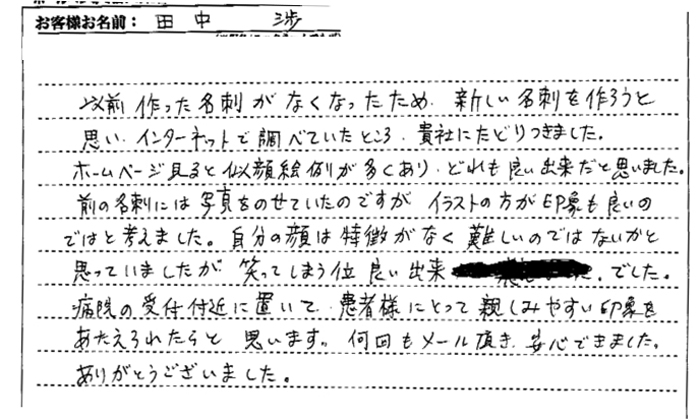 お客様お名前： 田中 渉
以前作った名刺がなくなったため、新しい名刺を作ろうと
思い、インターネットで調べていたところ、貴社にたどりつきました。
ホームページ見ると似顔絵例が多くあり、どれも良い出来だと思いました。
前の名刺には写真をのせていたのですが、イラストの方が印象も良いの
ではと考えました。自分の顔は特徴がなく難しいのではないかと
思っていましたが、笑ってしまう位良い出来 でした。
病院の受付付近に置いて、患者様にとって親しみやすい印象を
あたえられたらと思います。何回もメール頂き、安心できました。
ありがとうございました。